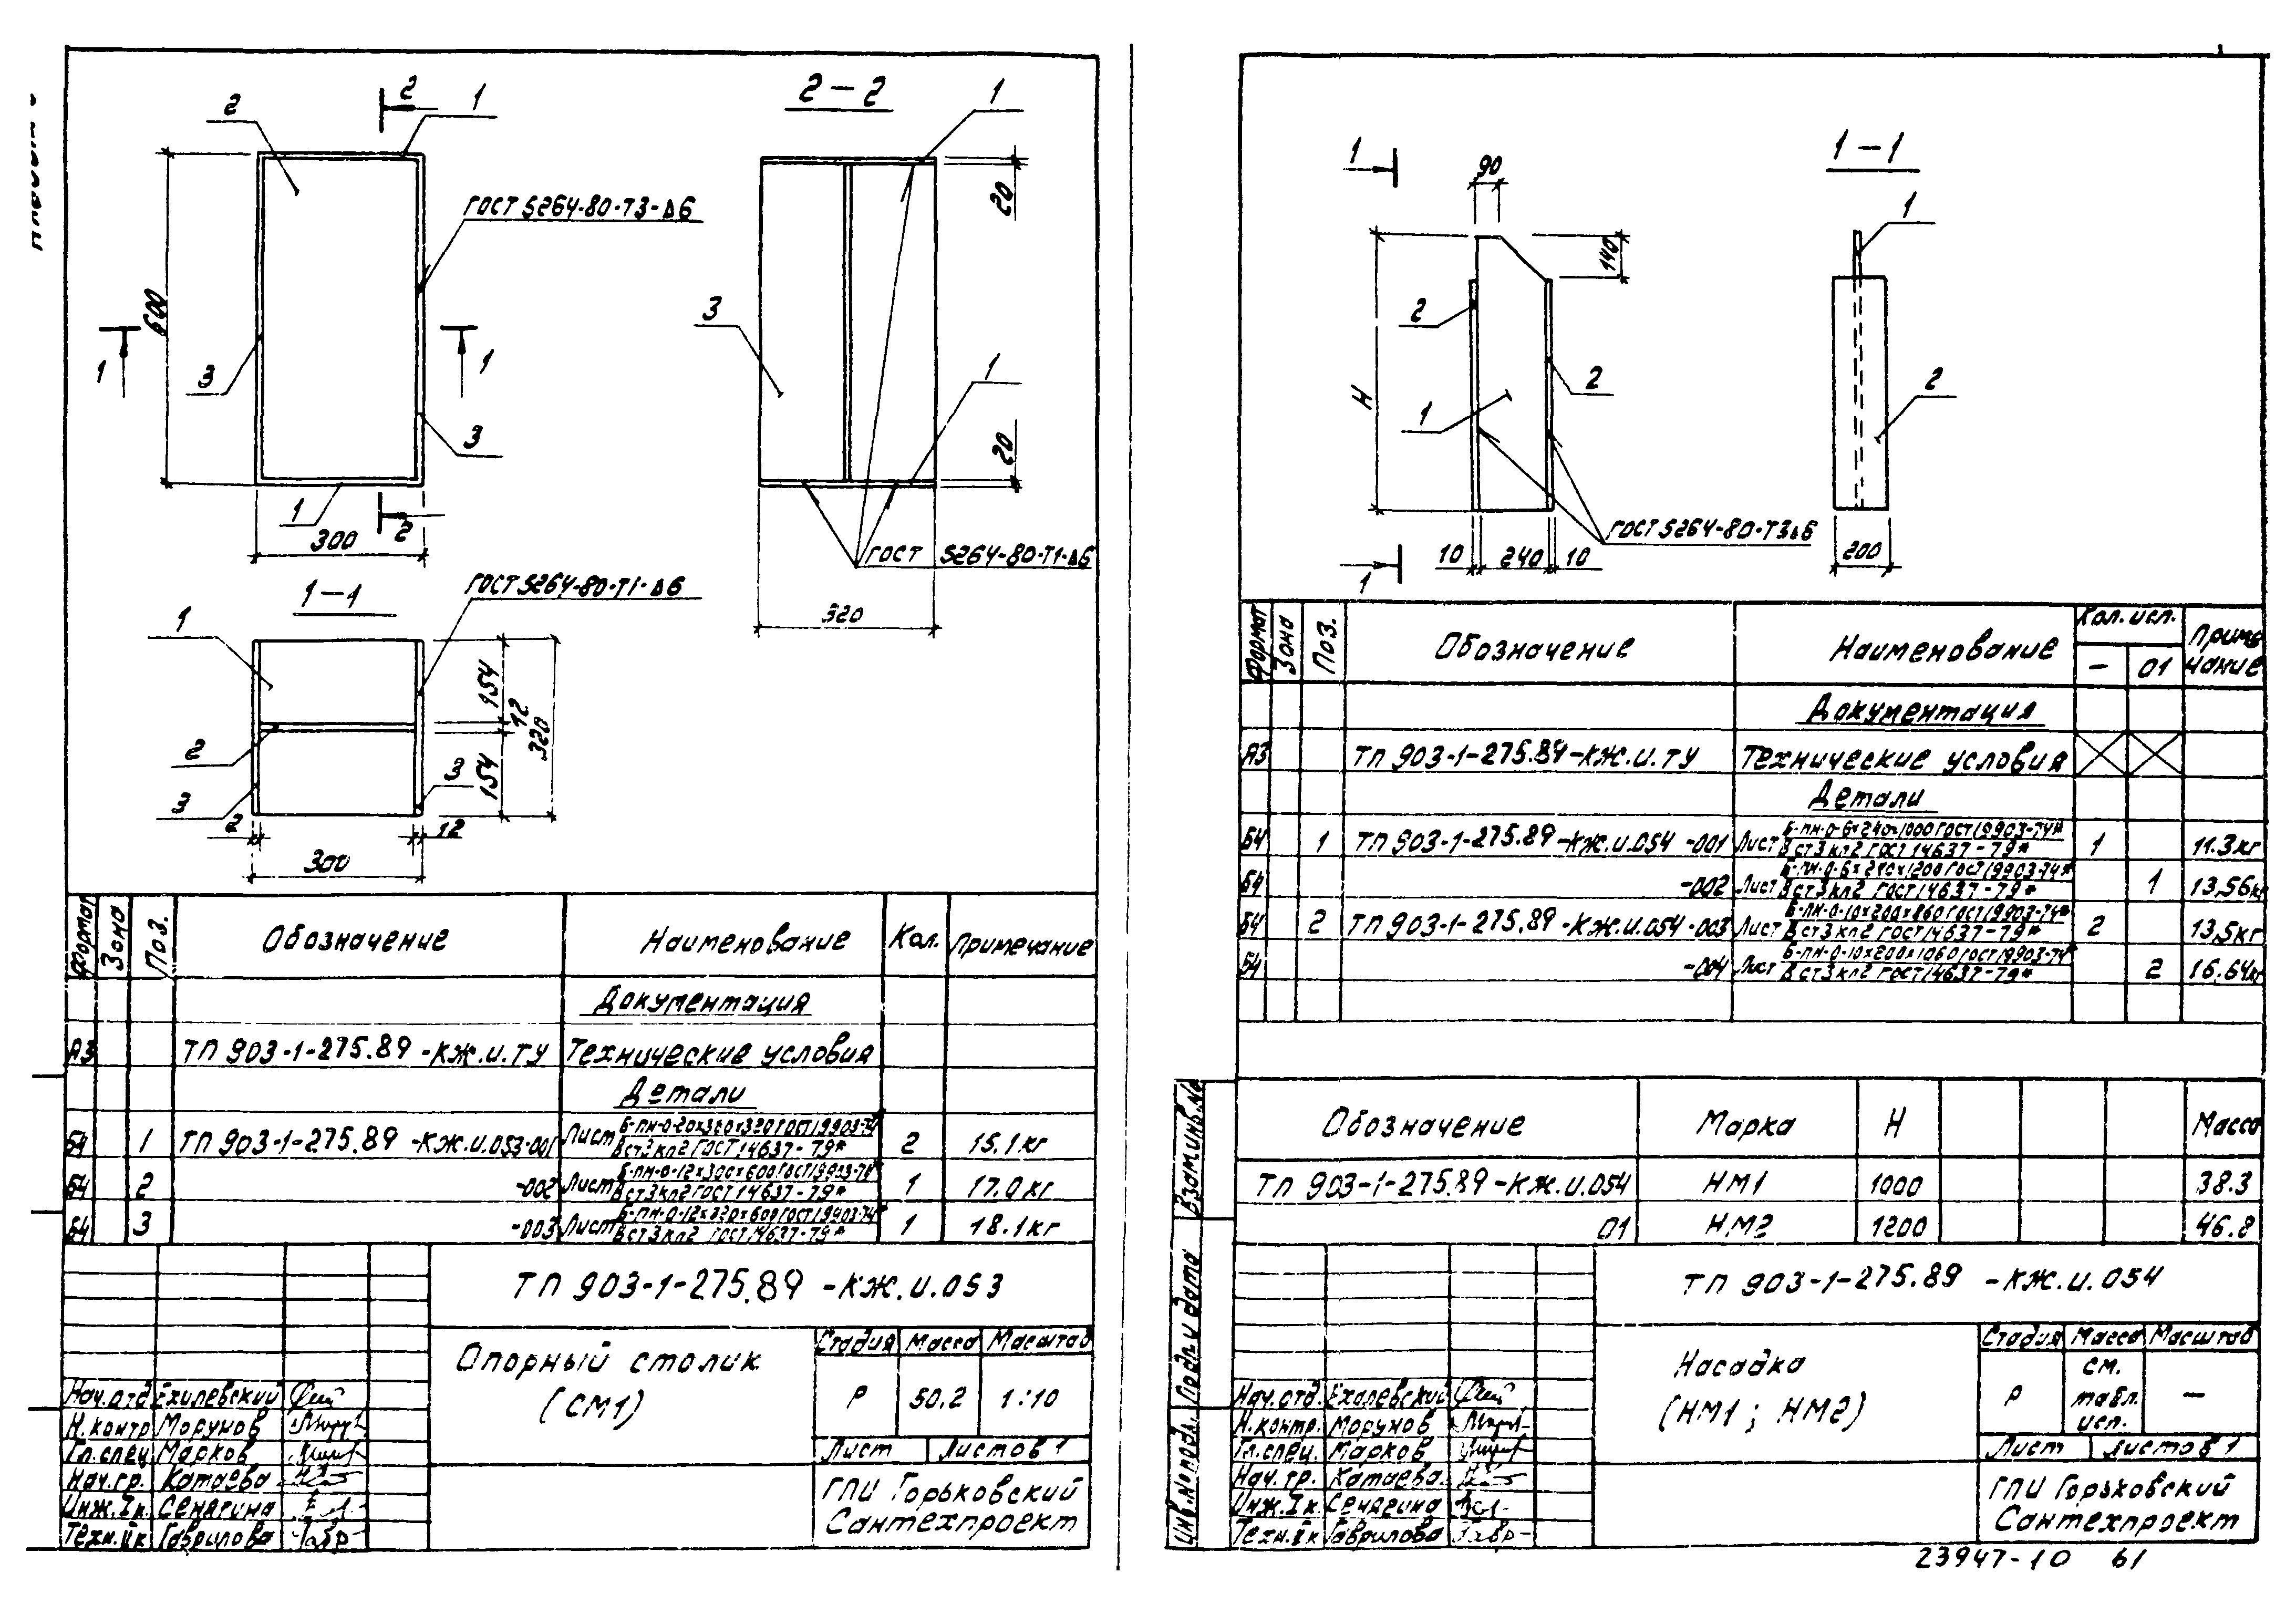 2
2
1
2-2
1
2
ГОСТ 5264-80-Т3-Δ6
20
600
1
1
3
3
3
1
20
1
2
300
ГОСТ 5264-80-Т1-Δ6
320
1-1
ГОСТ 5264-80-Т1-Δ6
1
154
12
320
154
2
3
3
2
12
300
Формат Зона Поз. Обозначение Наименование Кол. Примечание
Документация
А3 ТП 903-1-275.89 -КЖ.И.ТУ Технические условия
Детали
Б4 1 ТП 903-1-275.89 -КЖ.И.053-001 Лист Б-ПН-0-20х300х320 ГОСТ 19903-74* 2 15.1кг
Вст3кп2 ГОСТ 14637-79*
Б4 2 -002 Лист Б-ПН-0-12х300х600 ГОСТ 19903-74* 1 17.0 кг
Вст3кп2 ГОСТ 14637-79*
Б4 3 -003 Лист Б-ПН-0-12х320х600 ГОСТ 19903-74* 1 18.1кг
Вст3кп2 ГОСТ 14637-79*
ТП 903-1-275.89 -КЖ.И.053
Опорный столик
(СМ1)
Стадия Масса Масштаб
Р 50.2 1:10
Лист Листов 1
ГПИ Горьковский
Сантехпроект
Нач.отд Ехилевский
Н.контр Морунов
Гл.спец Марков
Нач.гр. Катаева
Инж.Iк. Сенягина
Техн.IIк Гаврилова
1
90
1-1
1
140
2
Н
2
1
2
ГОСТ 5264-80-Т3Δ6
10 240 10
200
1
Формат Зона Поз. Обозначение Наименование Кол.исп. Примечание
- 01
Документация
А3 ТП 903-1-275.89-КЖ.И.ТУ Технические условия
Детали
Б4 1 ТП 903-1-275.89 -КЖ.И.054 -001 Лист Б-ПН-0-6х240х1000 ГОСТ 19903-74* 1 11.3кг
Вст3кп2 ГОСТ 14637-79*
Б4 -002 Лист Б-ПН-0-6х240х1200 ГОСТ 19903-74* 1 13,56кг
Вст3кп2 ГОСТ 14637-79*
Б4 2 ТП 903-1-275.89 -КЖ.И.054 -003 Лист Б-ПН-0-10х200х860 ГОСТ 19903-74* 2 13,5кг
Вст3кп2 ГОСТ 14637-79*
Б4 -004 Лист Б-ПН-0-10х200х1060 ГОСТ 19903-74* 2 16.64кг
Вст3кп2 ГОСТ 14637-79*
Обозначение Марка Н Масса
ТП 903-1-275.89-КЖ.И.054 НМ1 1000 38.3
01 НМ2 1200 46.8
ТП 903-1-275.89 -КЖ.И.054
Насадка
(НМ1; НМ2)
Стадия Масса Масштаб
Р см. табл. исп. -
Лист Листов 1
ГПИ Горьковский
Сантехпроект
Нач.отд. Ехилевский
Н.контр. Морунов
Гл.спец. Марков
Нач.гр. Катаева
Инж.Iк. Сенягина
Техн.IIк Гаврилова
Взам.инв.№
Подп. и дата
Инв.№ подл.
23947-10 61